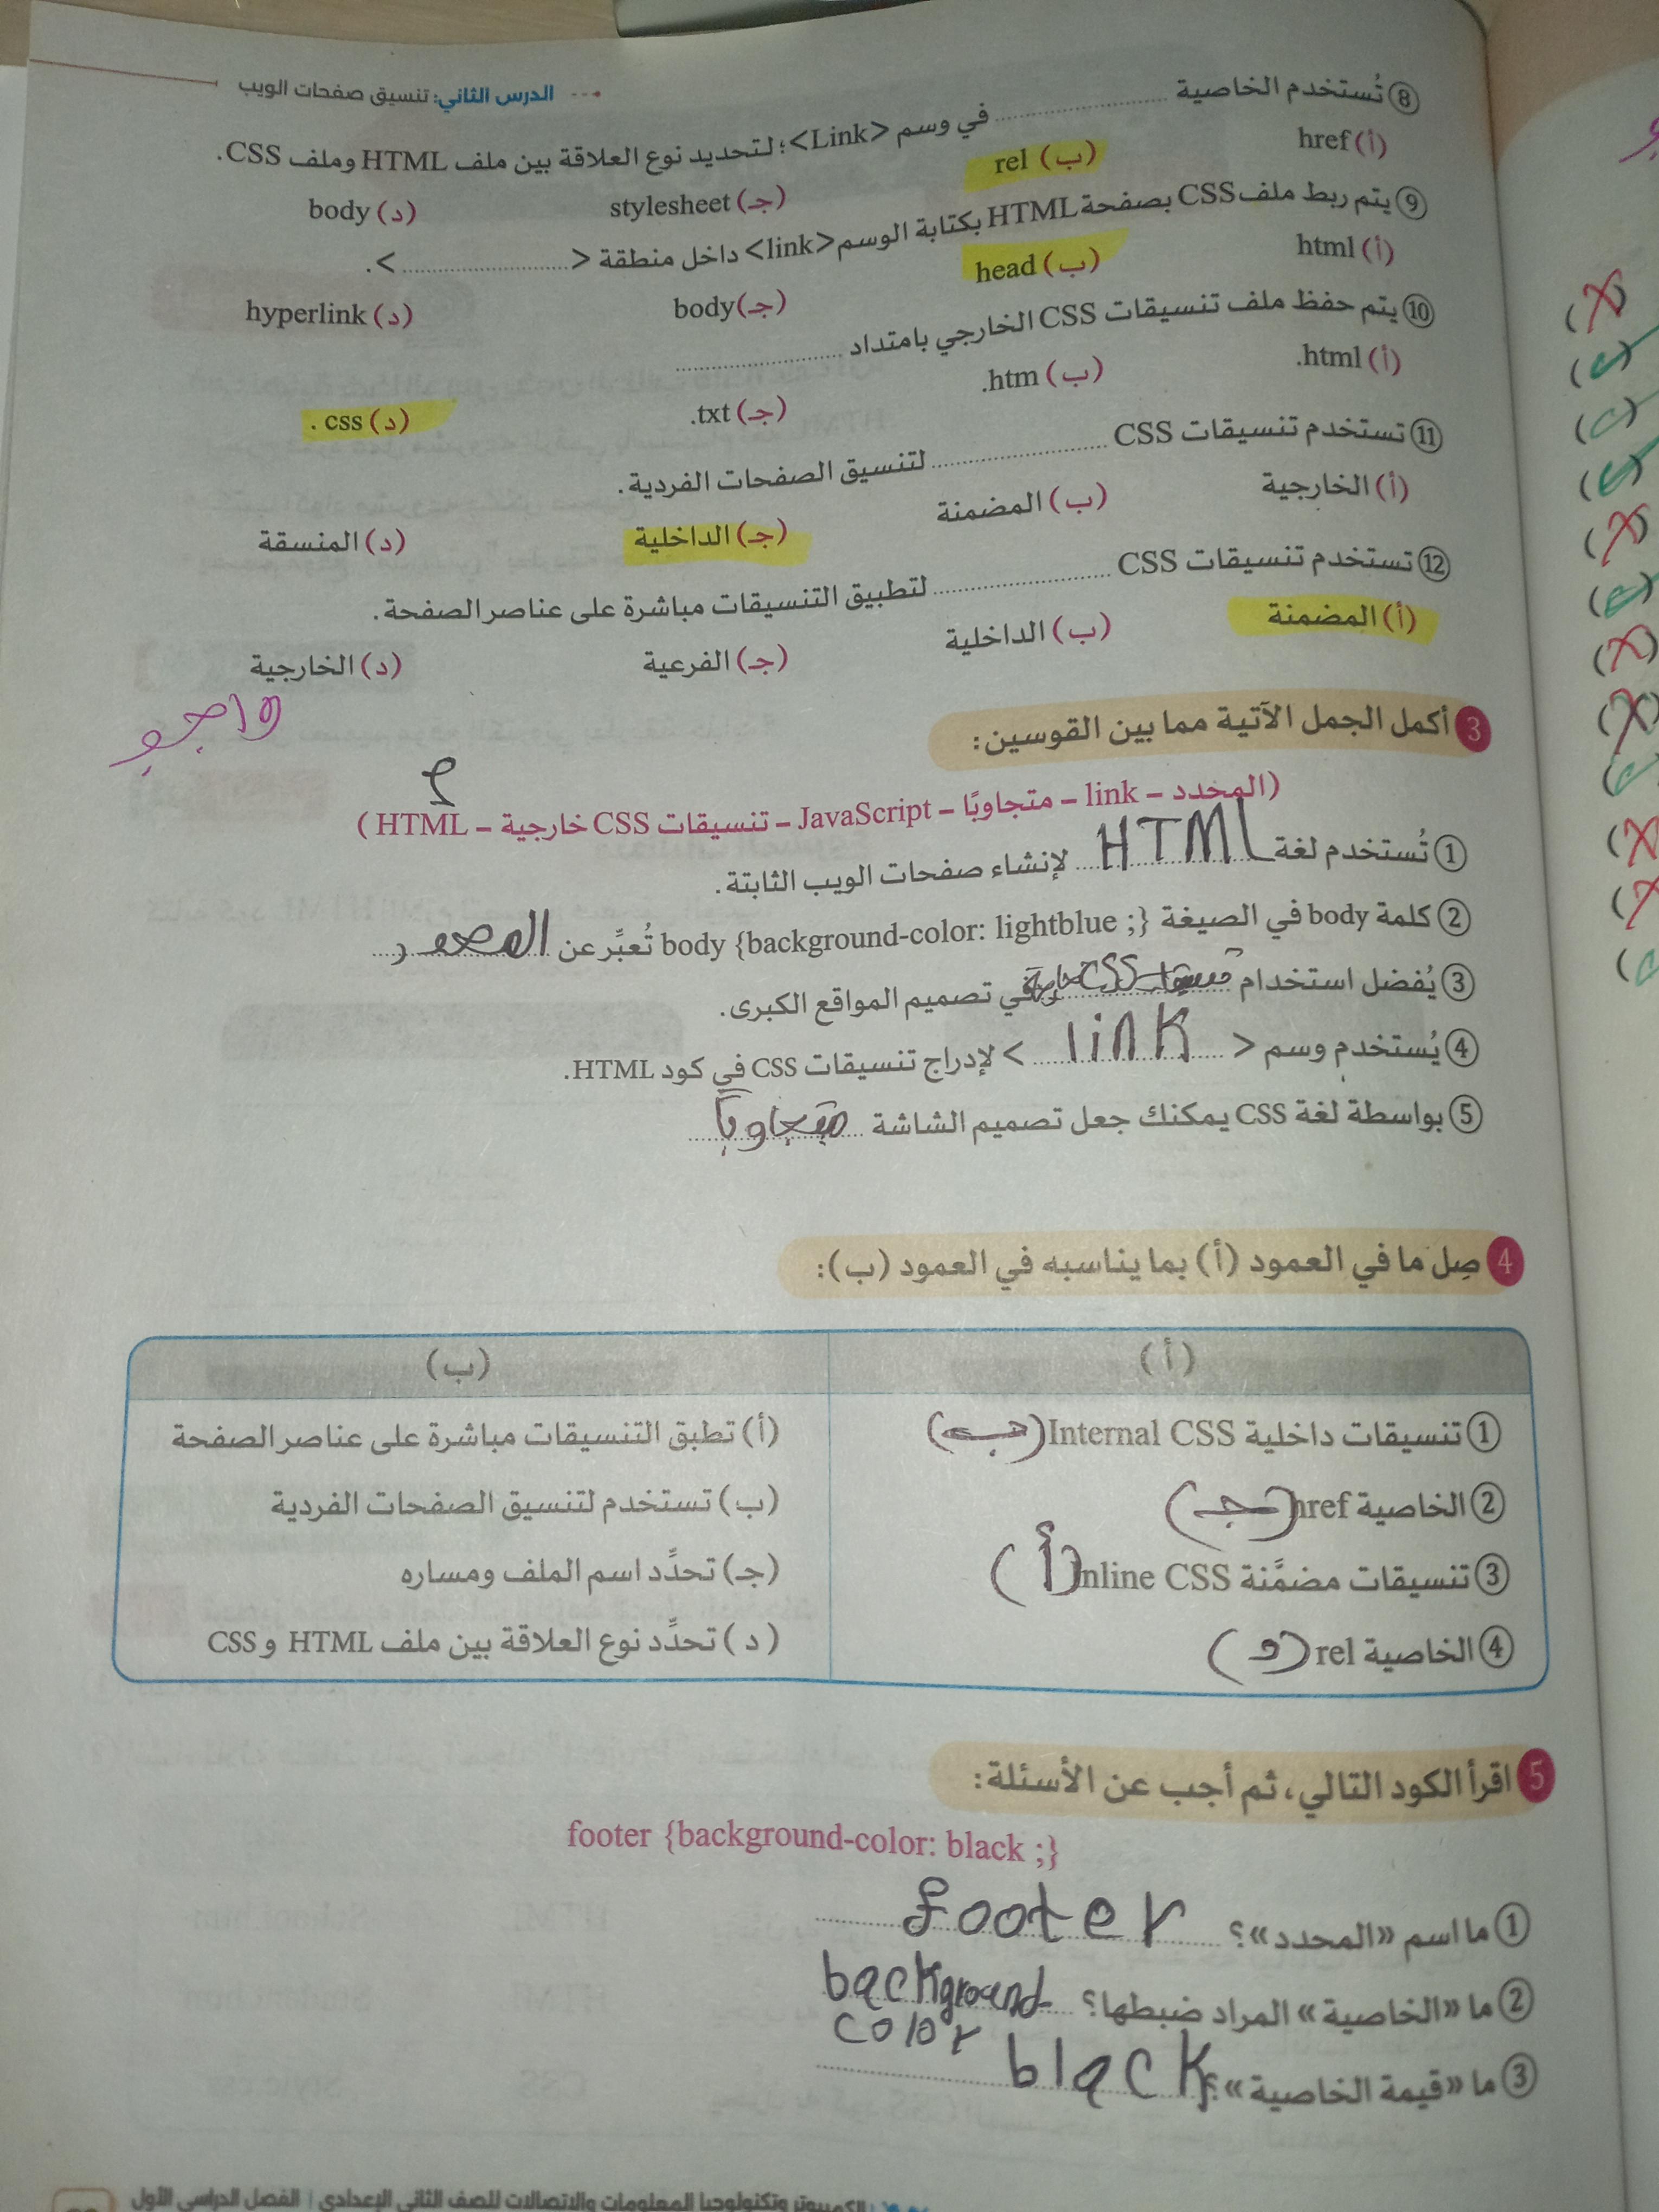 الدرس الثاني: تنسيق صفحات الويب
⑧ تُستخدم الخاصية .................... في وسم <Link>؛ لتحديد نوع العلاقة بين ملف HTML وملف CSS.
(أ) href (ب) rel (جـ) stylesheet (د) body
⑨ يتم ربط ملف CSS بصفحة HTML بكتابة الوسم <link> داخل منطقة < .................... >.
(أ) html (ب) head (جـ) body (د) hyperlink
⑩ يتم حفظ ملف تنسيقات CSS الخارجي بامتداد ....................
(أ) html. (ب) htm. (جـ) txt. (د) css .
⑪ تستخدم تنسيقات CSS .................... لتنسيق الصفحات الفردية.
(أ) الخارجية (ب) المضمنة (جـ) الداخلية (د) المنسقة
⑫ تستخدم تنسيقات CSS .................... لتطبيق التنسيقات مباشرة على عناصر الصفحة.
(أ) المضمنة (ب) الداخلية (جـ) الفرعية (د) الخارجية
3 أكمل الجمل الآتية مما بين القوسين:
(المحدد – link – متجاوبًا – JavaScript – تنسيقات CSS خارجية – HTML)
① تُستخدم لغة HTML لإنشاء صفحات الويب الثابتة.
② كلمة body في الصيغة body {background-color: lightblue ;} تُعبِّر عن
③ يُفضل استخدام تنسيقات CSS خارجية في تصميم المواقع الكبرى.
④ يُستخدم وسم < link > لإدراج تنسيقات CSS في كود HTML.
⑤ بواسطة لغة CSS يمكنك جعل تصميم الشاشة متجاوبا
4 صِل ما في العمود (أ) بما يناسبه في العمود (ب):
(أ) (ب)
① تنسيقات داخلية Internal CSS (ب) (أ) تطبق التنسيقات مباشرة على عناصر الصفحة
② الخاصية href (جـ) (ب) تستخدم لتنسيق الصفحات الفردية
③ تنسيقات مضمَّنة Inline CSS (أ) (جـ) تحدِّد اسم الملف ومساره
④ الخاصية rel (د) (د) تحدِّد نوع العلاقة بين ملف HTML و CSS
5 اقرأ الكود التالي، ثم أجب عن الأسئلة:
footer {background-color: black ;}
① ما اسم «المحدد»؟ footer
② ما «الخاصية» المراد ضبطها؟ background color
③ ما «قيمة الخاصية»؟ black
الكمبيوتر وتكنولوجيا المعلومات والاتصالات للصف الثاني الإعدادي | الفصل الدراسي الأول